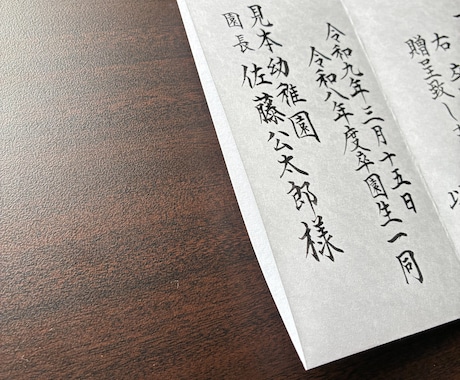 右
贈呈致し
令和九年三月十五日
令和八年度卒園生一同
見本幼稚園
園長 佐藤公太郎様